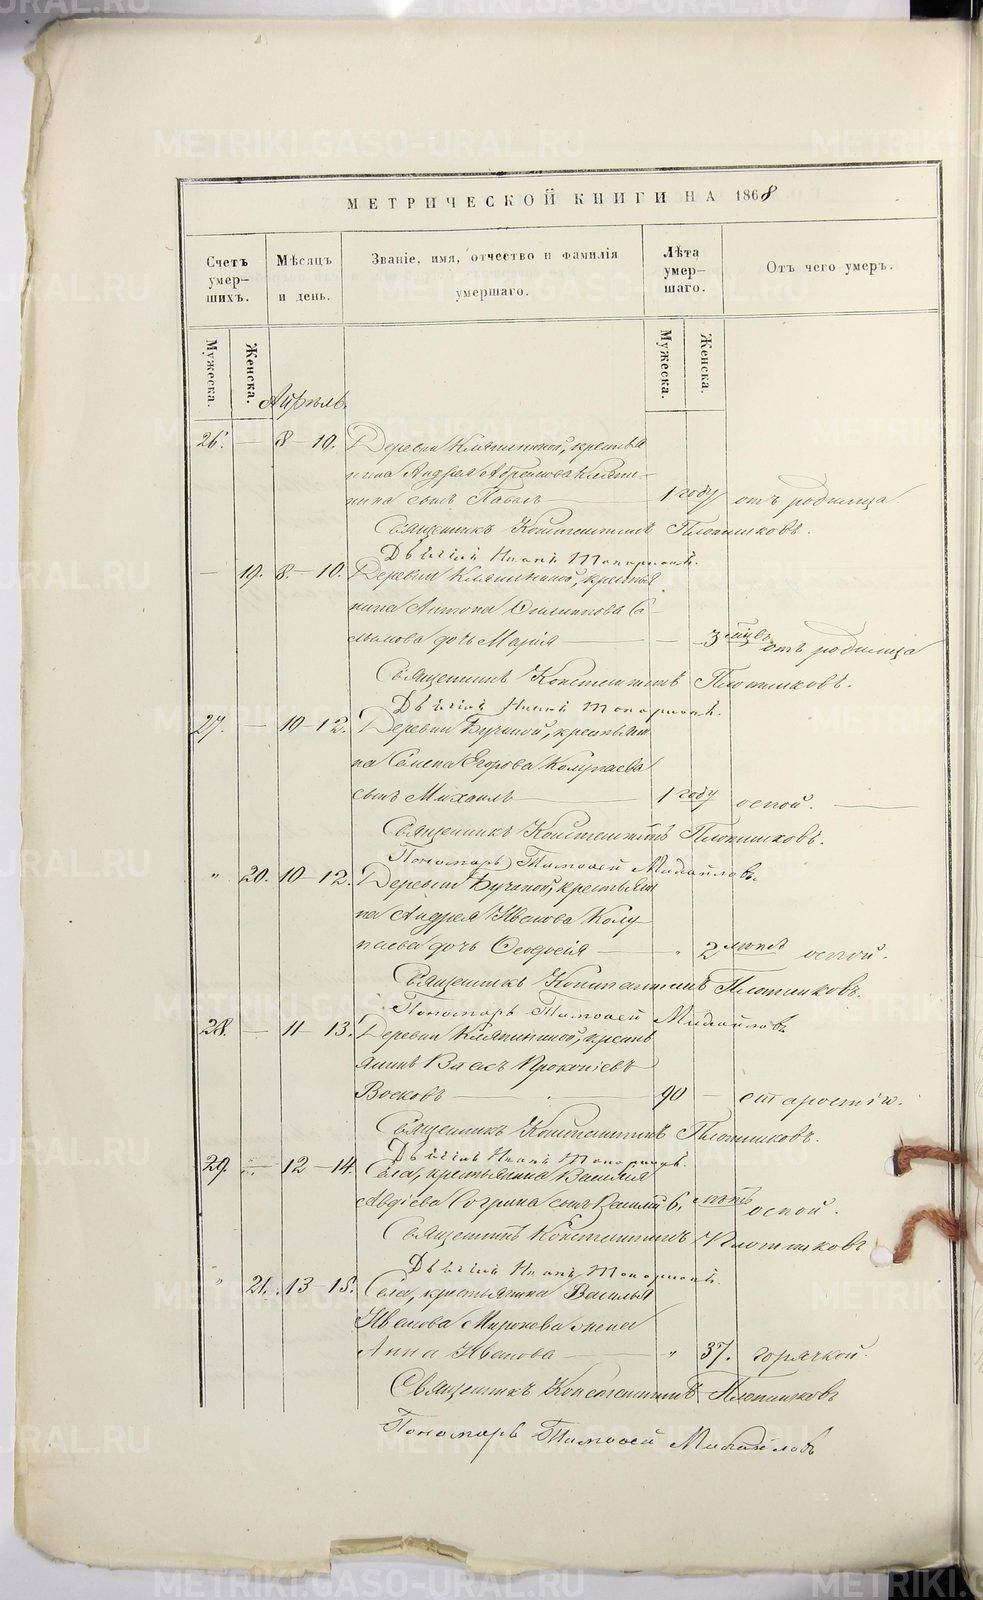 МЕТРИЧЕСКОЙ КНИГИ НА 1868
Счетъ умер-шихъ.
Мѣсяцъ и день.
Званіе, имя, отчество и фамилія умершаго.
Лѣта умер-шаго.
Отъ чего умеръ.
Мужеска.
Женска.
Мужеска.
Женска.
Апрѣль.
26. — 8 – 10. Деревни Кляпининой, крестья
нина Андрея
нина сынъ Павелъ — 1 году отъ родимца
Священникъ Константинъ Плотниковъ.
Дьячекъ Иванъ Топорковъ.
— 19. 8. – 10. Деревни Кляпининой, крестья
нина Антона Филиппова С
дочь Марія — — 3 мѣсяц. отъ родимца
Священникъ Константинъ Плотниковъ.
Дьячекъ Иванъ Топорковъ.
27. — 10 – 12. Деревни Бучиной, крестьяни
на Семена Егорова Колупаева
сынъ Михаилъ — 1 году оспой. —
Священникъ Константинъ Плотниковъ.
Пономарь Тимофей Михайловъ.
" 20. 10 – 12. Деревни Бучиной, крестьяни
на Андрея Иванова Колу
паева дочь Феодосія — " 2 лѣтъ оспой.
Священникъ Константинъ Плотниковъ.
Пономарь Тимофей Михайловъ
28. — 11 – 13. Деревни Кляпининой, кресть
янинъ Власъ Прокопіевъ
Восковъ — 90 — старостію.
Священникъ Константинъ Плотниковъ.
Дьячекъ Иванъ Топорковъ.
29. — 12 – 14. Села, крестьянина Василія
Авдіева Согрина сынъ Василій 6. лѣтъ оспой.
Священникъ Константинъ Плотниковъ
Дьячекъ Иванъ Топорковъ.
" 21. 13 – 15. Села, крестьянина Василья
Иванова Миронова жена
Анна Иванова — " 37. горячкой.
Священникъ Константинъ Плотниковъ
Пономарь Тимофей Михайловъ
METRIKI.GASO-URAL.RU